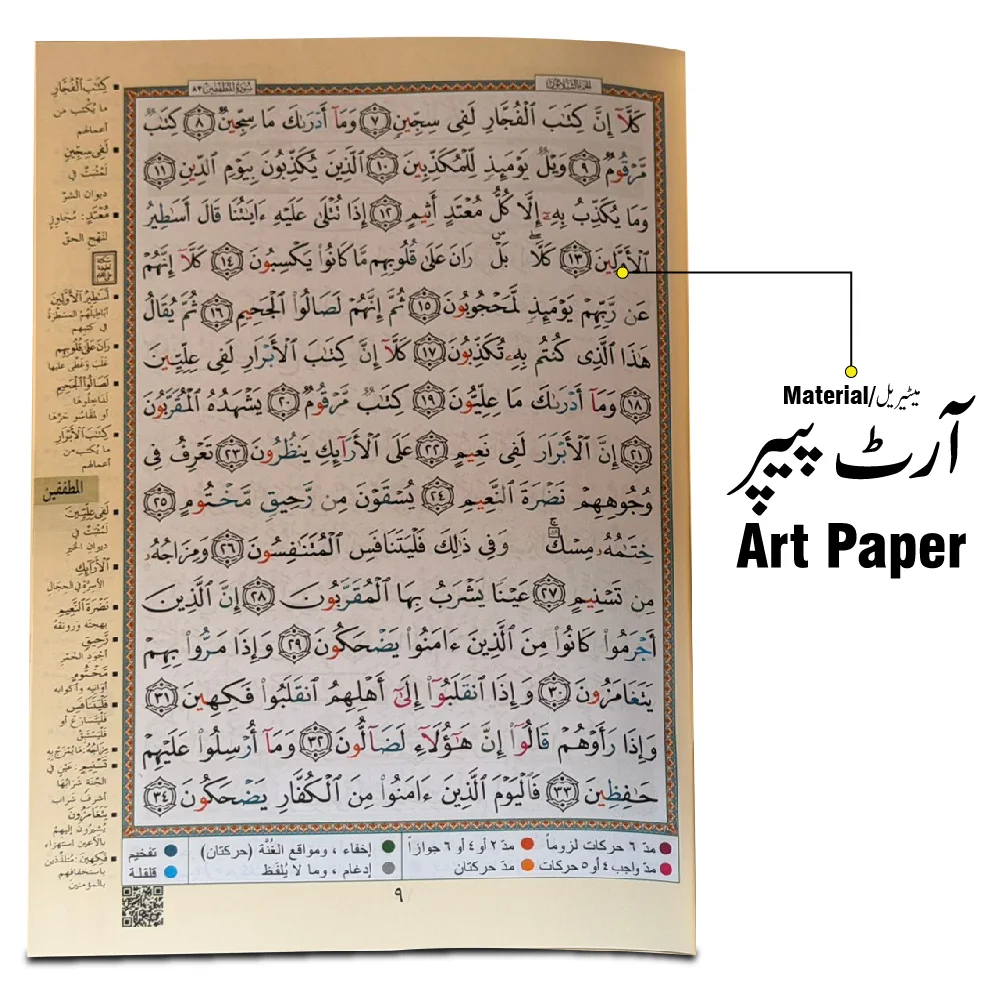 الجزء الثلاثون
سورة المطففين ٨٣
كَلَّآ إِنَّ كِتَٰبَ ٱلْفُجَّارِ لَفِى سِجِّينٍ ٧ وَمَآ أَدْرَىٰكَ مَا سِجِّينٌ ٨ كِتَٰبٌ
مَّرْقُومٌ ٩ وَيْلٌ يَوْمَئِذٍ لِّلْمُكَذِّبِينَ ١٠ ٱلَّذِينَ يُكَذِّبُونَ بِيَوْمِ ٱلدِّينِ ١١
وَمَا يُكَذِّبُ بِهِۦٓ إِلَّا كُلُّ مُعْتَدٍ أَثِيمٍ ١٢ إِذَا تُتْلَىٰ عَلَيْهِ ءَايَٰتُنَا قَالَ أَسَٰطِيرُ
ٱلْأَوَّلِينَ ١٣ كَلَّا ۖ بَلْ ۜ رَانَ عَلَىٰ قُلُوبِهِم مَّا كَانُوا۟ يَكْسِبُونَ ١٤ كَلَّآ إِنَّهُمْ
عَن رَّبِّهِمْ يَوْمَئِذٍ لَّمَحْجُوبُونَ ١٥ ثُمَّ إِنَّهُمْ لَصَالُوا۟ ٱلْجَحِيمِ ١٦ ثُمَّ يُقَالُ
هَٰذَا ٱلَّذِى كُنتُم بِهِۦ تُكَذِّبُونَ ١٧ كَلَّآ إِنَّ كِتَٰبَ ٱلْأَبْرَارِ لَفِى عِلِّيِّينَ
١٨ وَمَآ أَدْرَىٰكَ مَا عِلِّيُّونَ ١٩ كِتَٰبٌ مَّرْقُومٌ ٢٠ يَشْهَدُهُ ٱلْمُقَرَّبُونَ
٢١ إِنَّ ٱلْأَبْرَارَ لَفِى نَعِيمٍ ٢٢ عَلَى ٱلْأَرَآئِكِ يَنظُرُونَ ٢٣ تَعْرِفُ فِى
وُجُوهِهِمْ نَضْرَةَ ٱلنَّعِيمِ ٢٤ يُسْقَوْنَ مِن رَّحِيقٍ مَّخْتُومٍ ٢٥
خِتَٰمُهُۥ مِسْكٌ ۚ وَفِى ذَٰلِكَ فَلْيَتَنَافَسِ ٱلْمُتَنَٰفِسُونَ ٢٦ وَمِزَاجُهُۥ
مِن تَسْنِيمٍ ٢٧ عَيْنًا يَشْرَبُ بِهَا ٱلْمُقَرَّبُونَ ٢٨ إِنَّ ٱلَّذِينَ
أَجْرَمُوا۟ كَانُوا۟ مِنَ ٱلَّذِينَ ءَامَنُوا۟ يَضْحَكُونَ ٢٩ وَإِذَا مَرُّوا۟ بِهِمْ
يَتَغَامَزُونَ ٣٠ وَإِذَا ٱنقَلَبُوٓا۟ إِلَىٰٓ أَهْلِهِمُ ٱنقَلَبُوا۟ فَكِهِينَ ٣١
وَإِذَا رَأَوْهُمْ قَالُوٓا۟ إِنَّ هَٰٓؤُلَآءِ لَضَآلُّونَ ٣٢ وَمَآ أُرْسِلُوا۟ عَلَيْهِمْ
حَٰفِظِينَ ٣٣ فَٱلْيَوْمَ ٱلَّذِينَ ءَامَنُوا۟ مِنَ ٱلْكُفَّارِ يَضْحَكُونَ ٣٤
كِتَٰبَ ٱلْفُجَّارِ
ما يُكتب من
أعمالهم
لَفِى سِجِّينٍ
لَمُثبَتٌ في
ديوان الشرّ
مُعْتَدٍ: مُتجاوزٍ
لنَهج الحقّ
أَسَٰطِيرُ ٱلْأَوَّلِينَ
أباطيلُهم المسطّرة
في كتبهم
رَانَ عَلَىٰ قُلُوبِهِم
غَلَبَ وغطّى عليها
لَصَالُوا۟ ٱلْجَحِيمِ
لداخلوها
أو لمقاسو حرّها
كِتَٰبَ ٱلْأَبْرَارِ
ما يُكتب من
أعمالهم
المطففين
لَفِى عِلِّيِّينَ
لَمُثبَتٌ في
ديوان الخير
ٱلْأَرَآئِكِ
الأسرّة في الحجال
نَضْرَةَ ٱلنَّعِيمِ
بهجته ورونقه
رَّحِيقٍ
أجود الخمر
مَّخْتُومٍ
أوانيه وأكوابه
فَلْيَتَنَافَسِ
فليتسارع أو
فليستبق
مِزَاجُهُۥ: ما يُمزج به
تَسْنِيمٍ: عين في
الجنة شرابُها
أشرف شراب
يَتَغَامَزُونَ
يُشيرون إليهم
بالأعين استهزاء
فَكِهِينَ: مُتلذّذين
باستخفافهم
بالمؤمنين
مدّ ٦ حركات لزوماً
مدّ ٢ أو ٤ أو ٦ جوازاً
إخفاء ، ومواقع الغُنَّة (حركتان)
تفخيم
مدّ واجب ٤ أو ٥ حركات
مدّ حركتان
إدغام ، وما لا يُلفَظ
قلقلة
٩
Material/میٹیریل
آرٹ پیپر
Art Paper